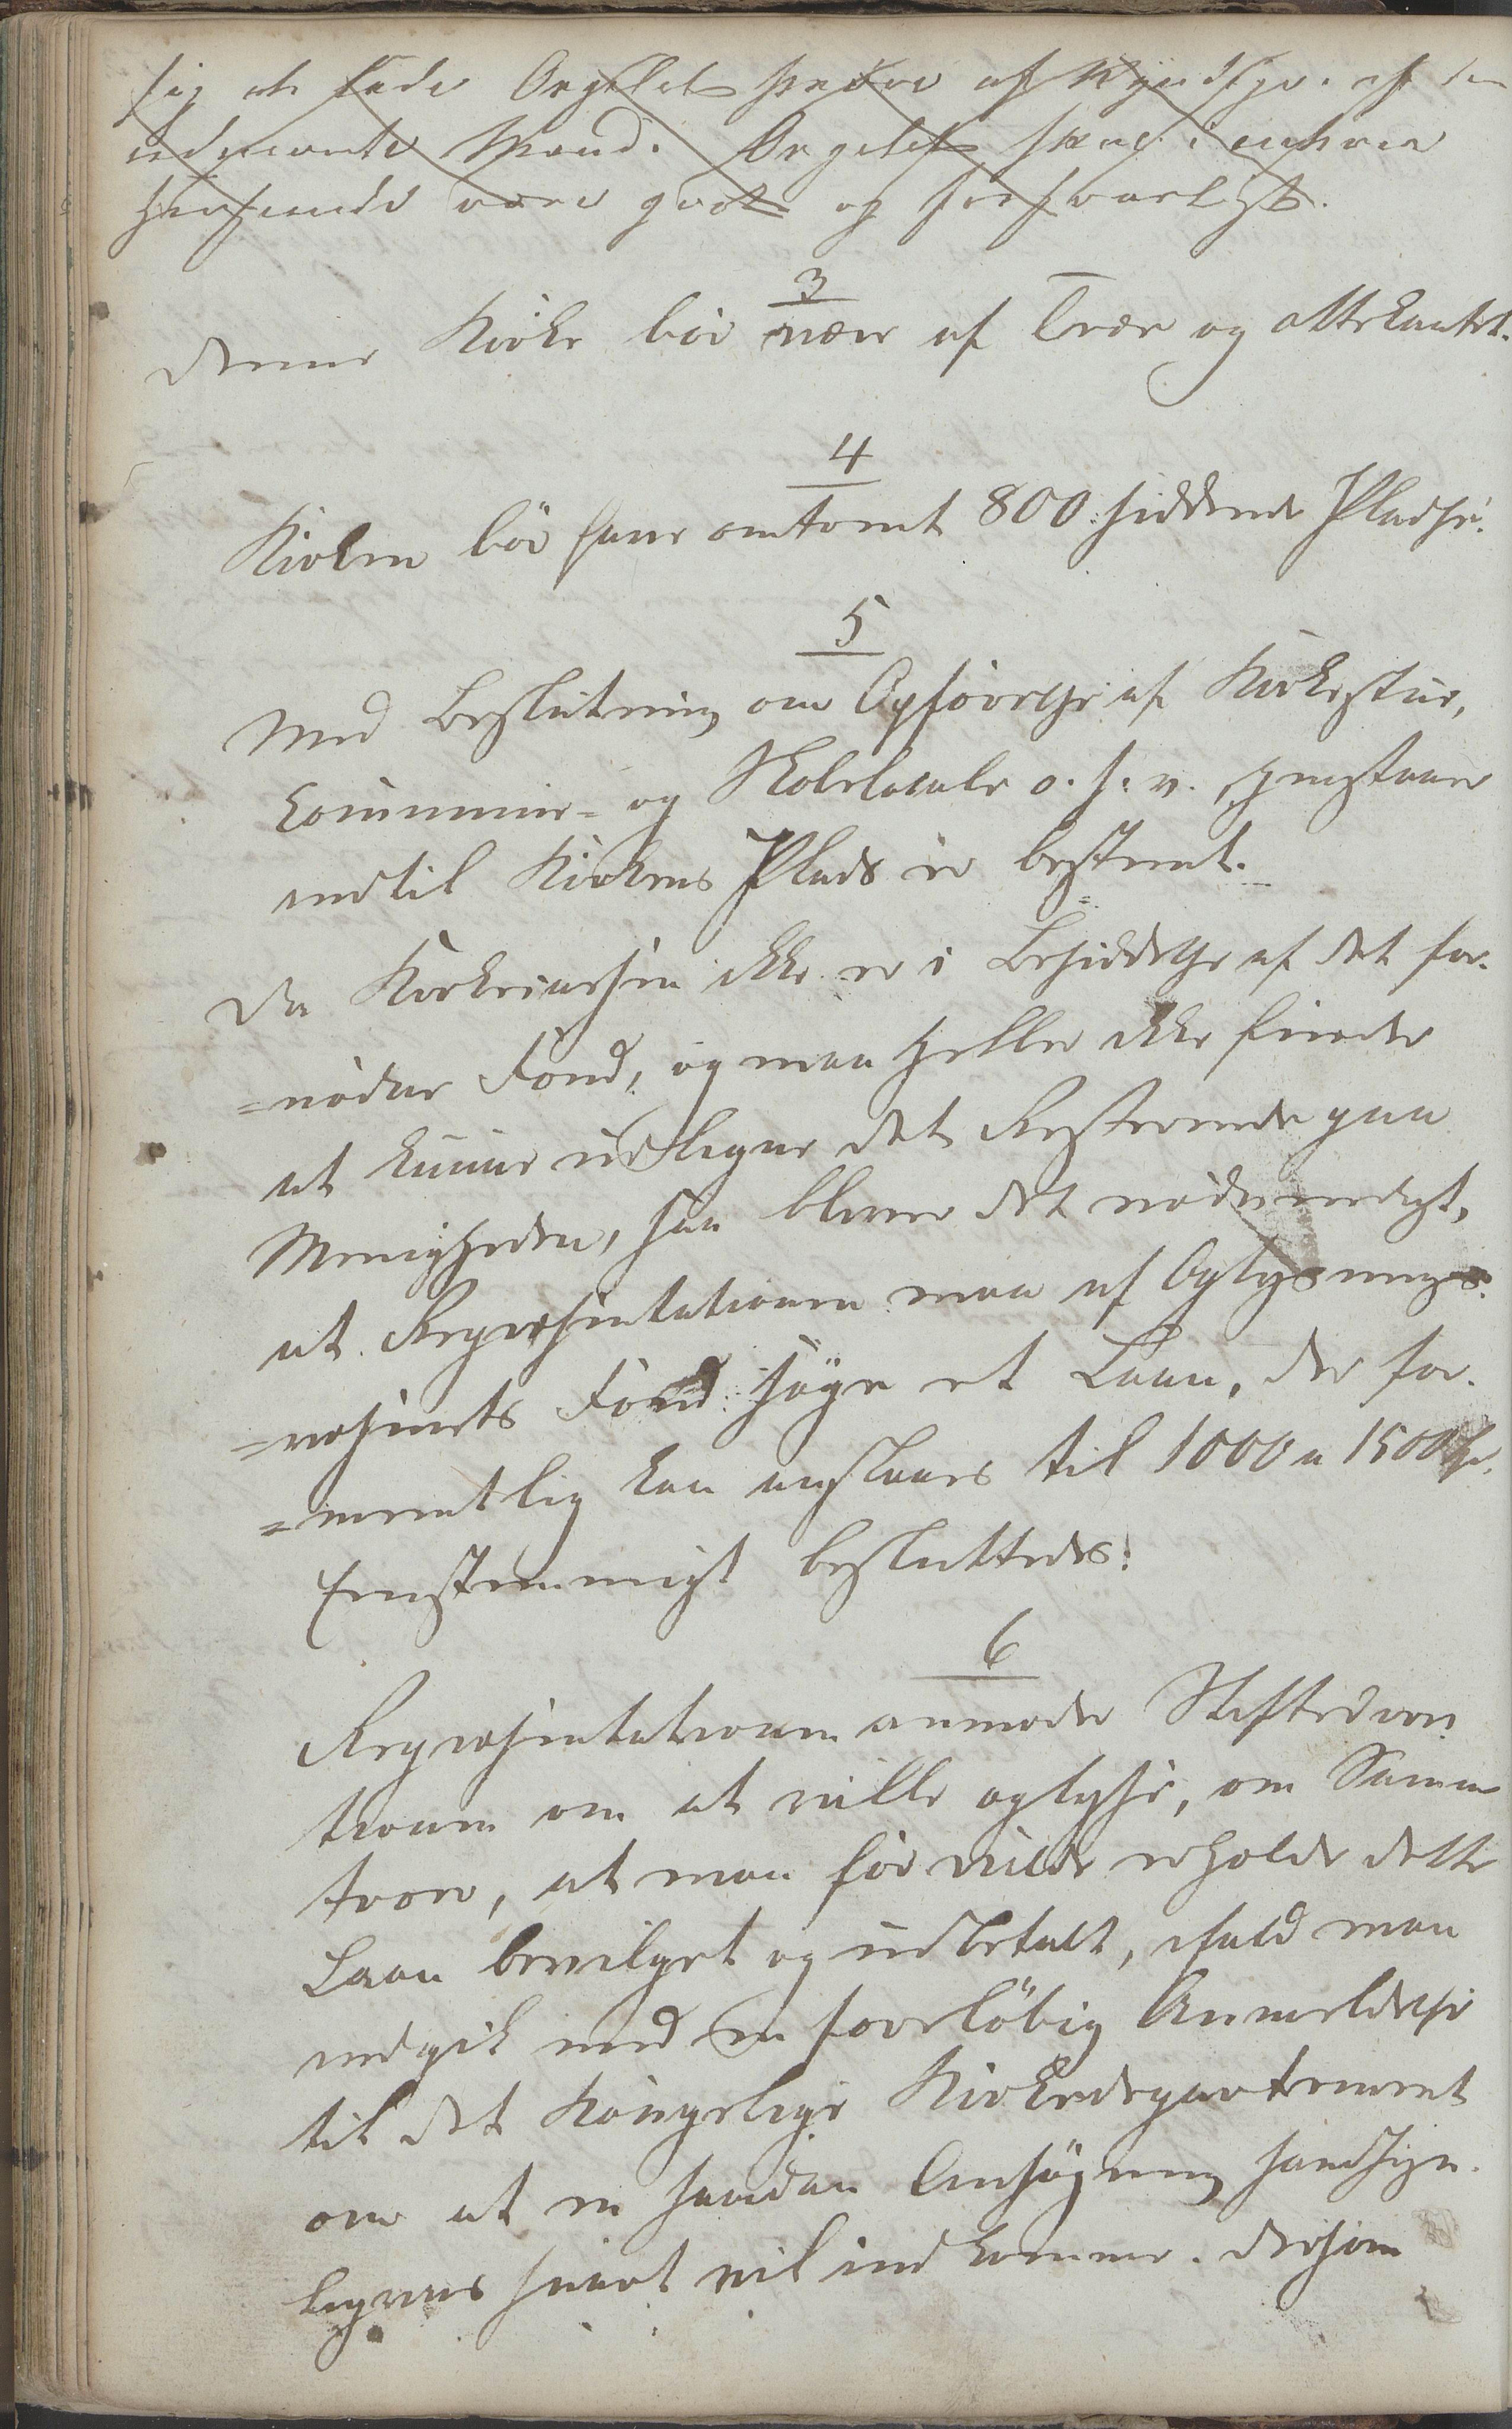 sig at lade Orgelet prøve af Kyndige. af den
udnævnte Mand. Orgelet skal i enhver
Henseende være godt og forsvarligt.
3
Denne Kirke bör være af Træe og ottekantet.
4
Kirken bör have omtrent 800. siddende Pladse.
5
Med Beslutning om Opförelse af Kirkestue,
Commune= og Skolelocale o. s. v. henstaaer
indtil Kirkens Plads er bestemt.
Da Kirkecassen ikke er i Besiddelse af det for-
=nödne Fond, og man heller ikke finder
at kunne udligne det Resterende paa
Menigheden, saa bliver det nödvendigt,
at Repræsentationen maa af Oplysnings-
=væsenets Fond söge et Laan, der for-
=mentlig kan anslaaes til 1000 a 1500 Spd.
Eenstemmigt besluttedes:
6
Repræsentationen anmoder Stiftsdirec
tionen om at ville oplyse, om Samme
troer, at man for vilde erholde dette
Laan bevilget og udbetalt, ifald man
indgik med en foreløbig Anmeldelse
til det Kongelige Kirkedepartement
om at en saadan Ansögning sandsyn-
ligviis snart vil indkomme. Dersom